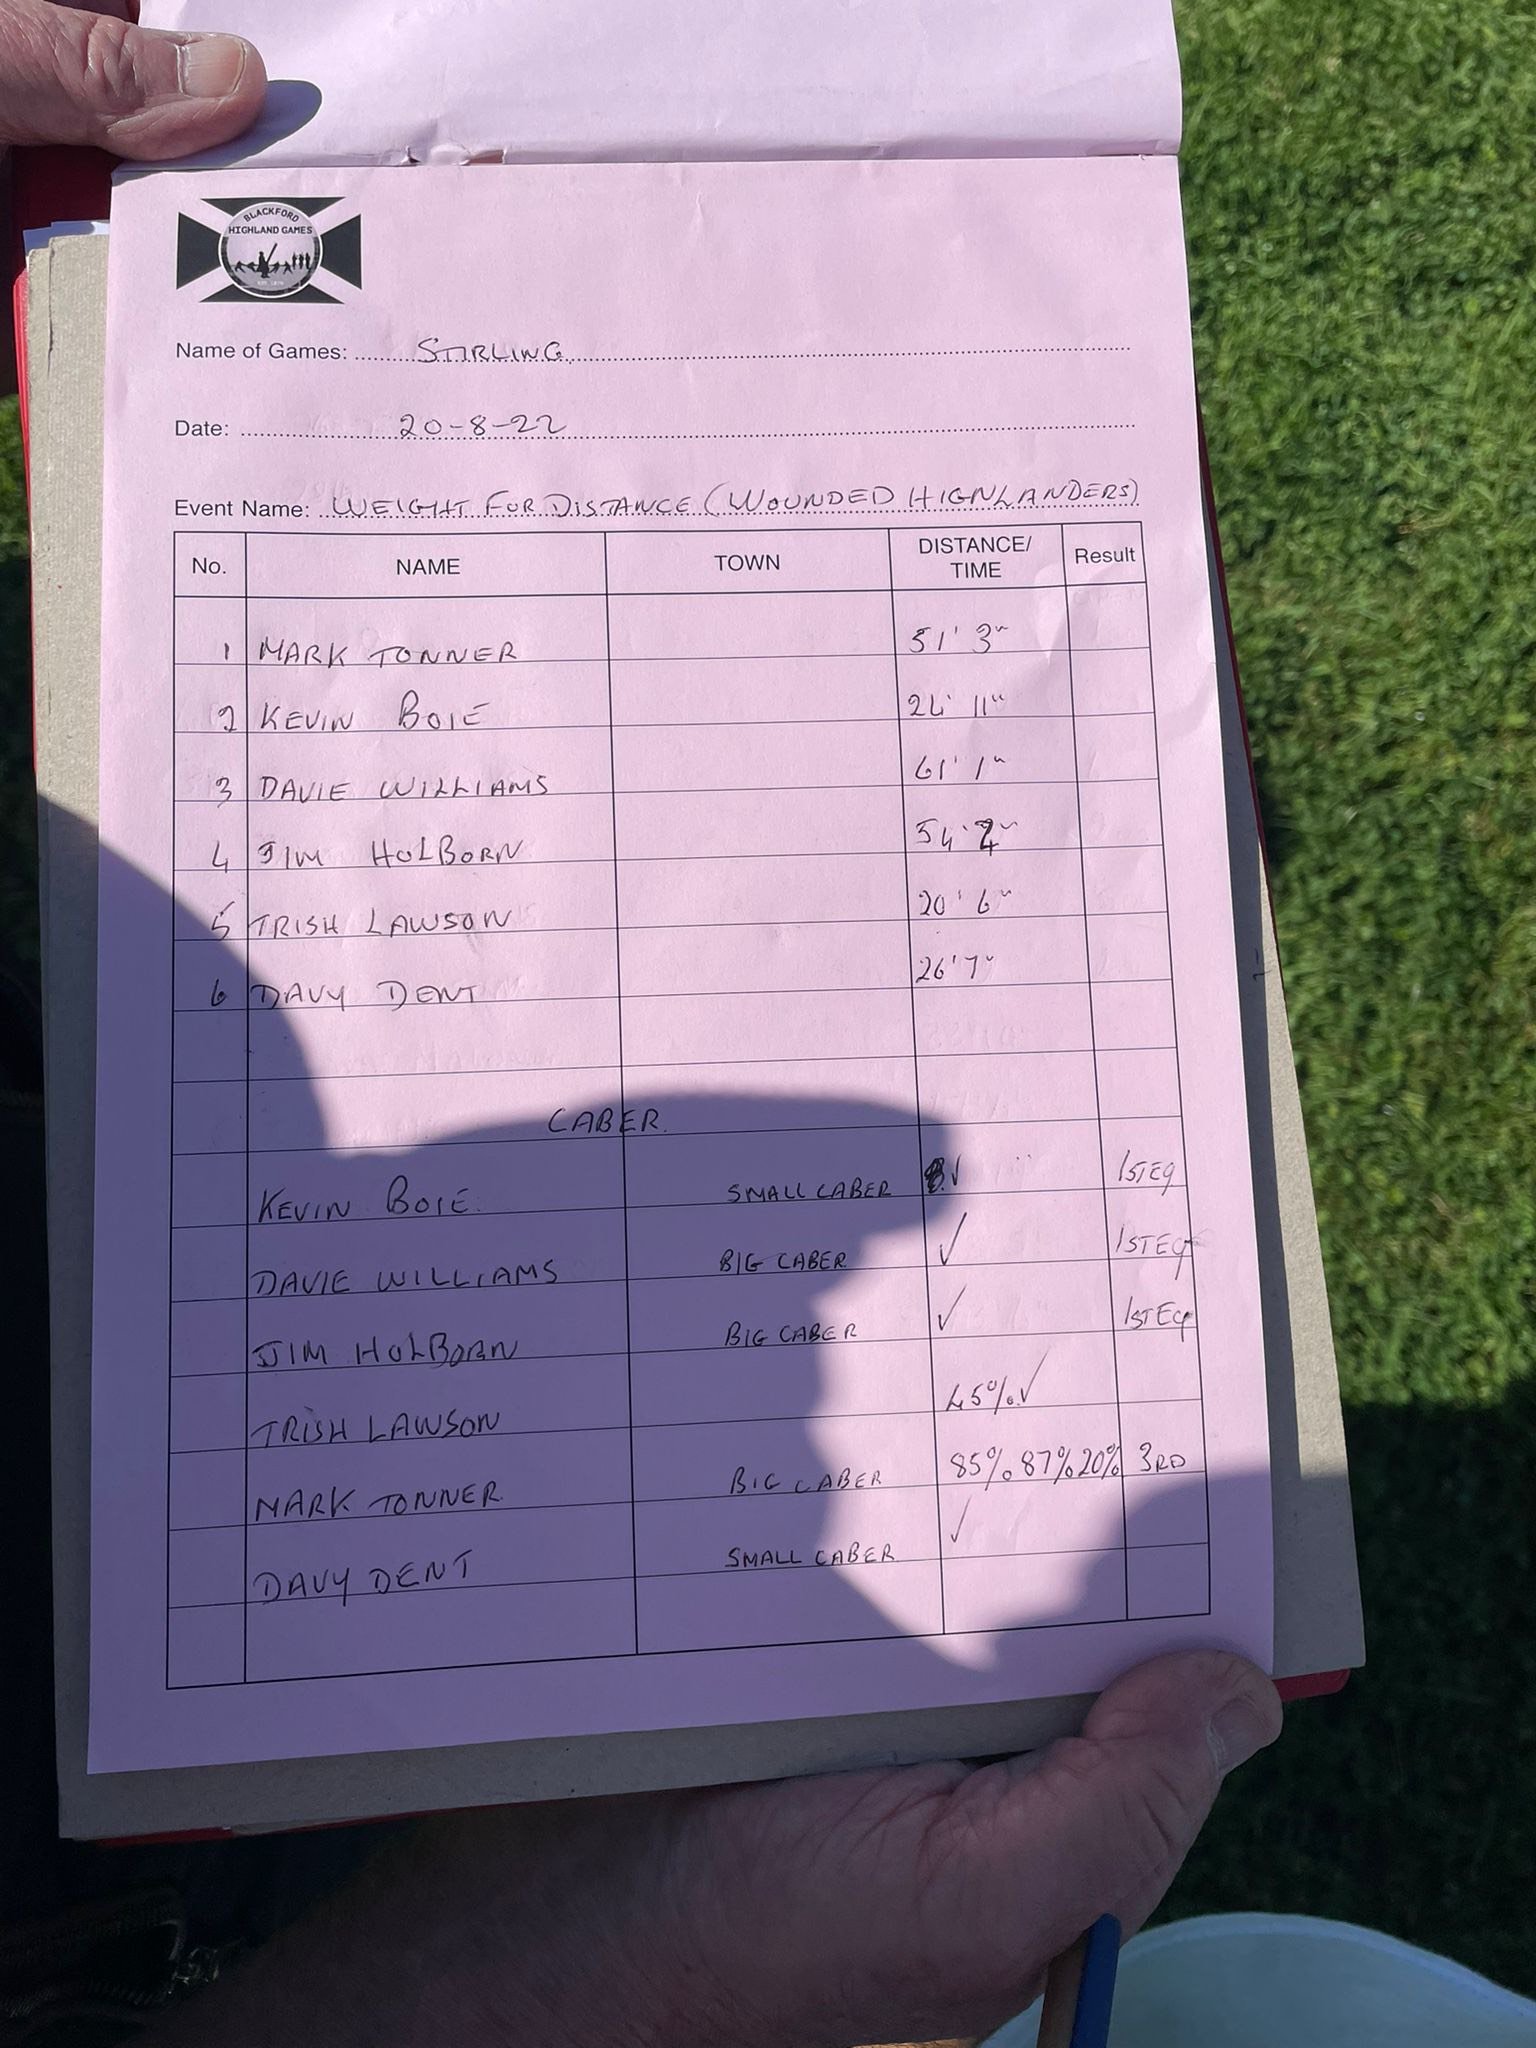 BLACKFORD
HIGHLAND GAMES
Name of Games: STIRLING
Date: 20-8-22
Event Name: WEIGHT FOR DISTANCE (WOUNDED HIGHLANDERS)
No. NAME TOWN DISTANCE/ TIME Result
1 MARK TONNER 51' 3"
2 KEVIN BOIE 24' 11"
3 DAVIE WILLIAMS 61' 1"
4 JIM HOLBORN 54'
5 TRISH LAWSON 20' 6"
6 DAVY DENT 26' 7"
CABER.
KEVIN BOIE. SMALL CABER ✓ 1STEQ
DAVIE WILLIAMS BIG CABER ✓ 1STEQ
JIM HOLBORN BIG CABER ✓ 1STEQ
TRISH LAWSON 45% ✓
MARK TONNER BIG CABER 85% 87% 20% 3RD
DAVY DENT SMALL CABER ✓